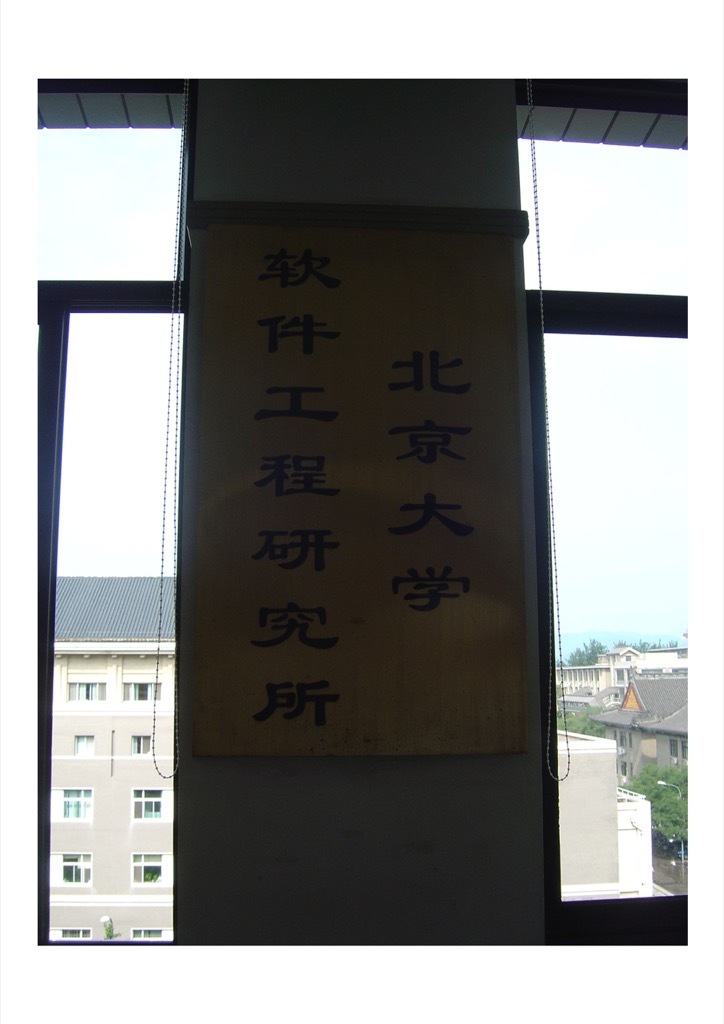 北京大学
软件工程研究所